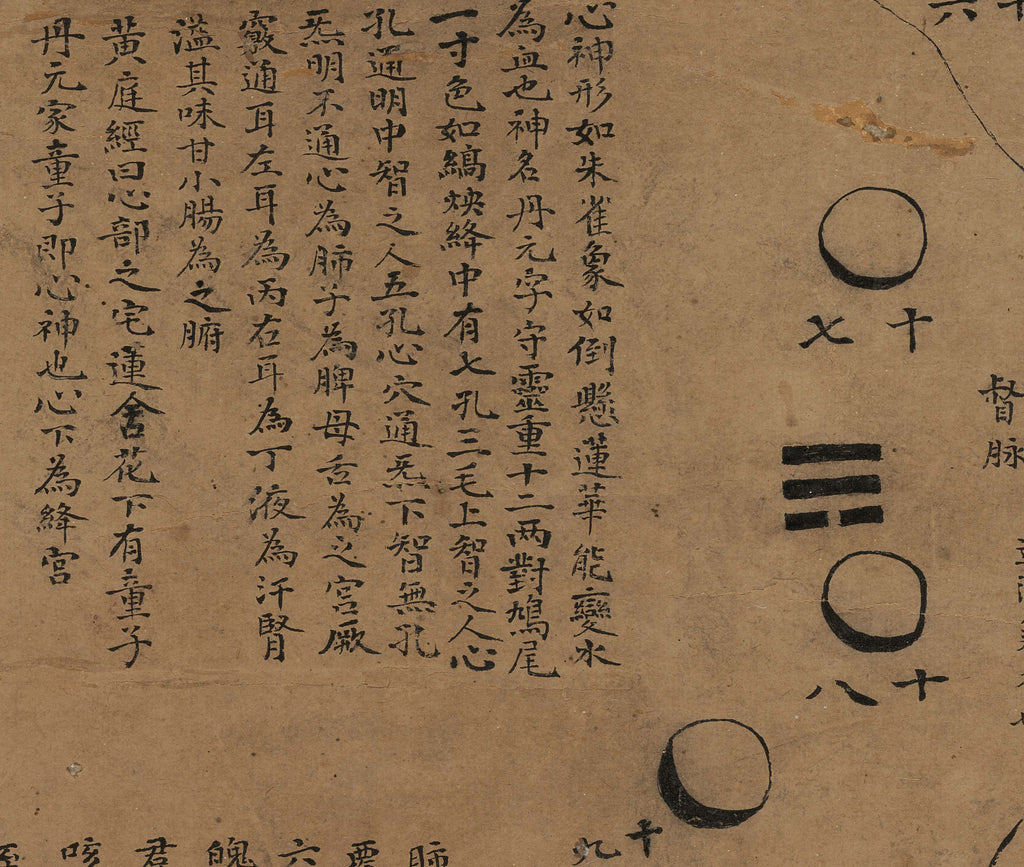 十六
督脉
十七
十八
十九
心神形如朱雀象如倒懸蓮華能變水
為血也神名丹元字守靈重十二两對鳩尾
一寸色如縞映絳中有七孔三毛上智之人心
孔通明中智之人五孔心穴通炁下智無孔
炁明不通心為肺子為脾母舌為之宫厥
竅通耳左耳為丙右耳為丁液為汗腎
溢其味甘小腸為之腑
黄庭經曰心部之宅蓮含花下有童子
丹元家童子即心神也心下為絳宫
肺
六
魄
君
咳